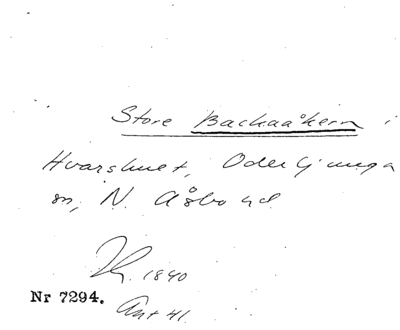 Store Backaåkern i
Hvarshult, Oderljunga
sn, N. Åsbo hd
1840
Nr 7294.
Ant 41